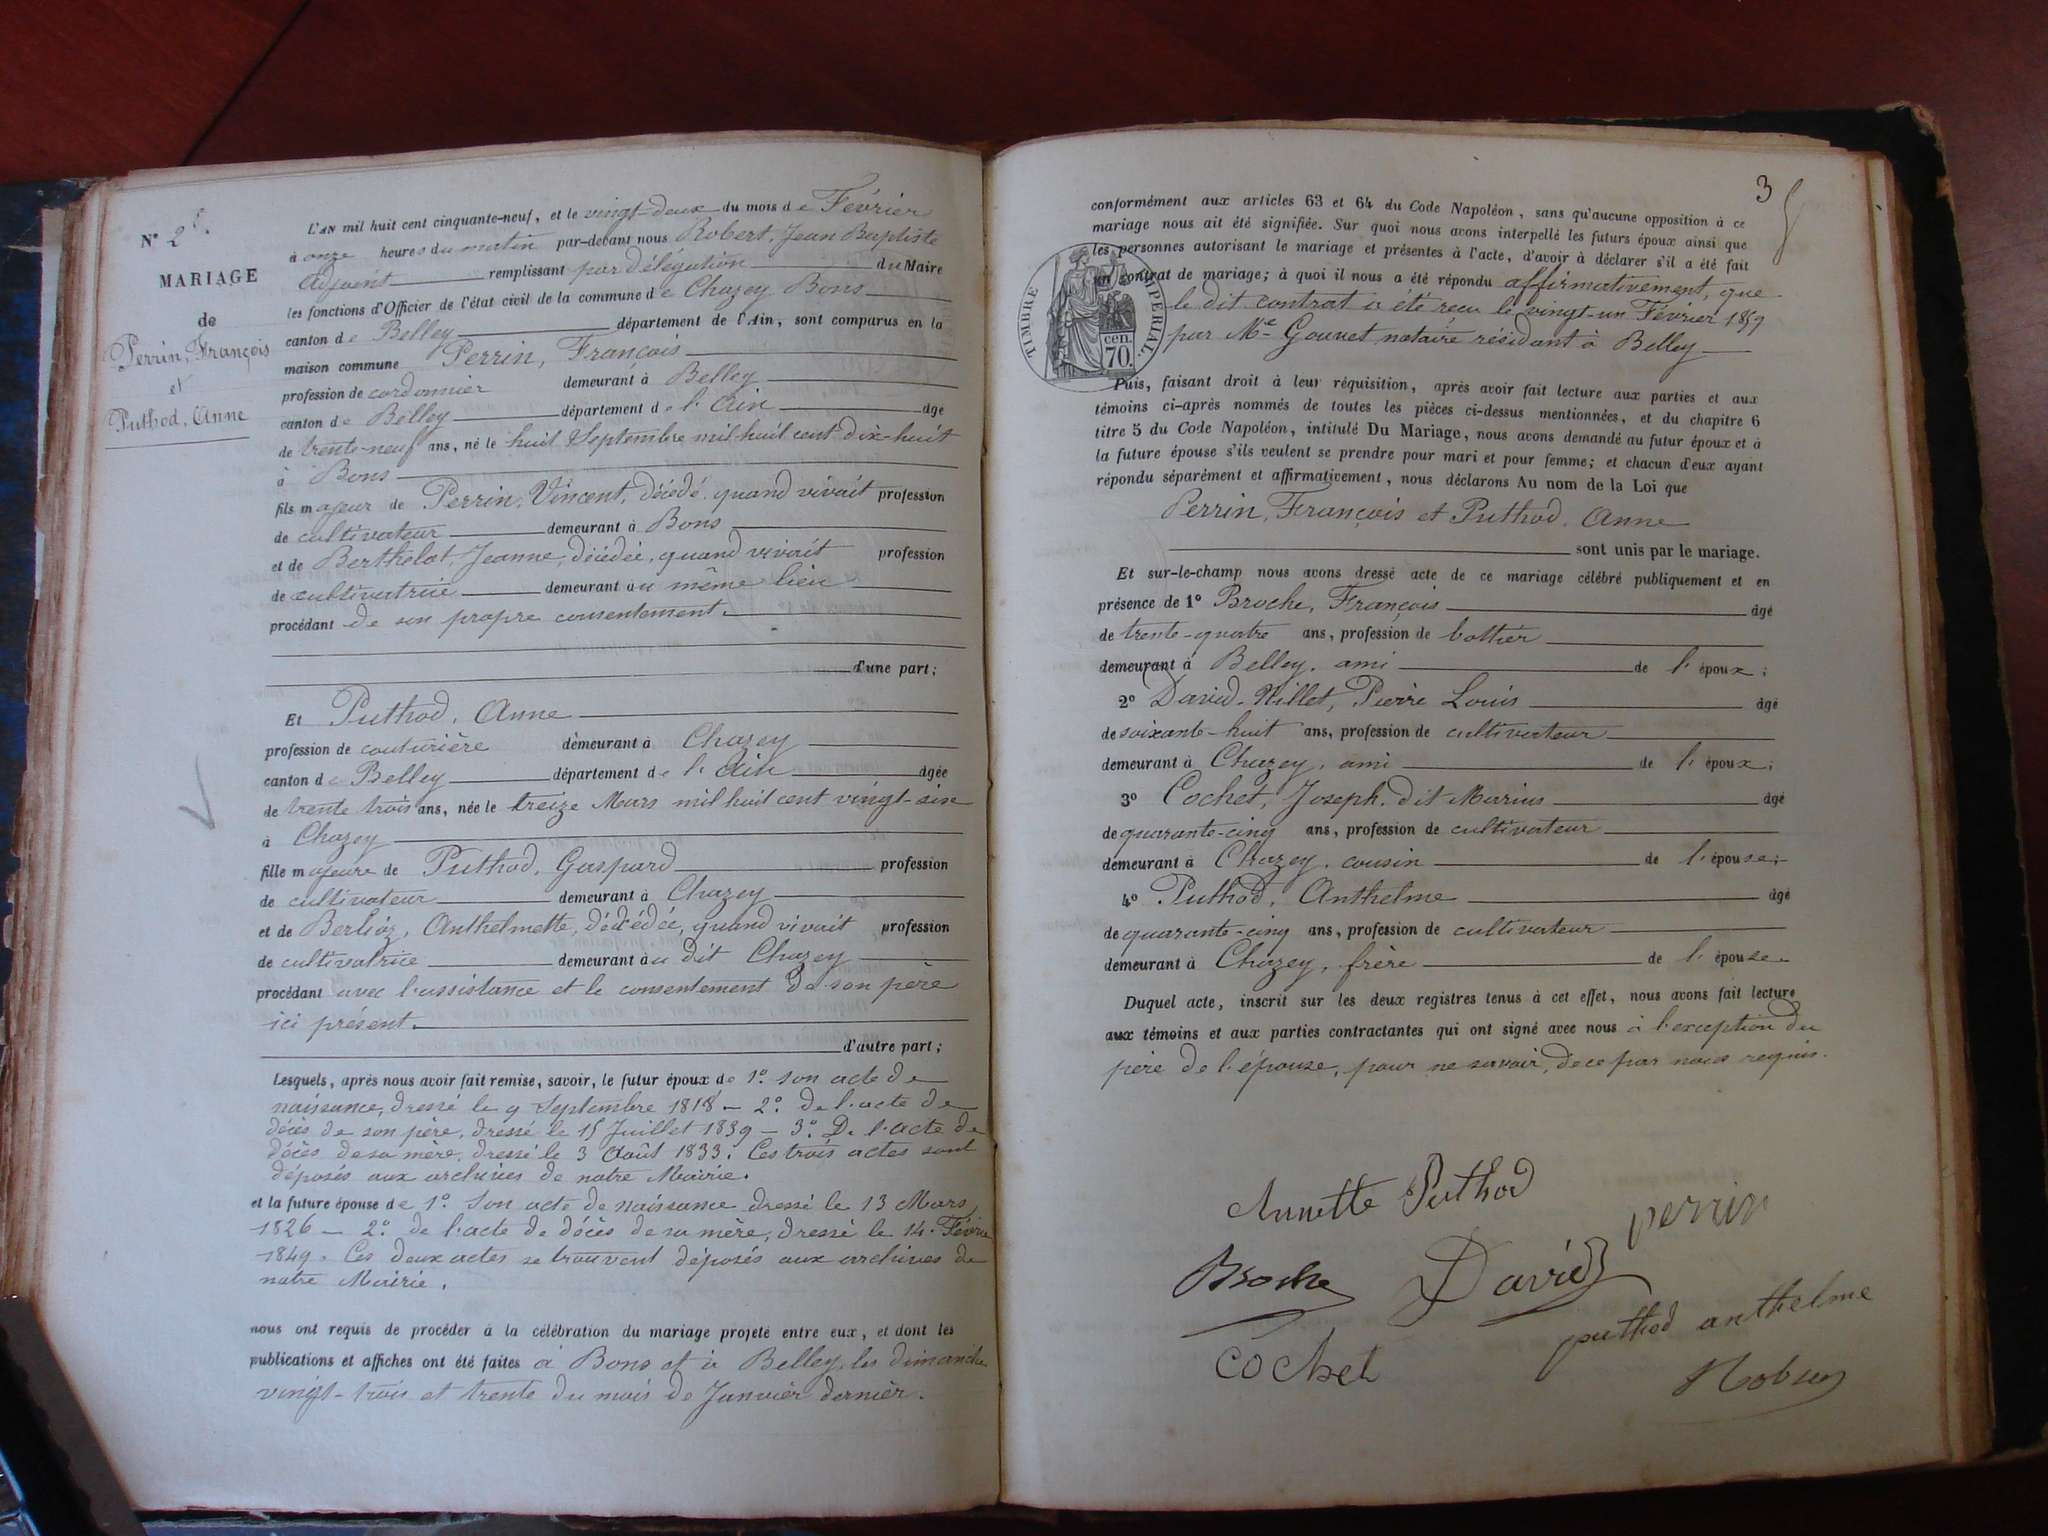 N° 2
MARIAGE
de
Perrin, François
et
Puthod, Anne
L'AN mil huit cent cinquante-neuf, et le vingt-deux du mois de Février
à onze heures du matin par-devant nous Robert, Jean Baptiste
adjoint remplissant par délégation du Maire
les fonctions d'Officier de l'état civil de la commune de Chazey Bons
canton de Belley département de l'Ain, sont comparus en la
maison commune Perrin, François
profession de cordonnier demeurant à Belley
canton de Belley département de l'Ain âgé
de trente-neuf ans, né le huit Septembre mil huit cent dix-huit
à Bons
fils majeur de Perrin, Vincent, décédé, quand vivait profession
de cultivateur demeurant à Bons
et de Berthelot, Jeanne, décédée, quand vivait profession
de cultivatrice demeurant au même lieu
procédant de son propre consentement.
d'une part;
Et Puthod, Anne
profession de couturière demeurant à Chazey
canton de Belley département de l'Ain âgée
de trente trois ans, née le treize Mars mil huit cent vingt-six
à Chazey
fille majeure de Puthod, Gaspard profession
de cultivateur demeurant à Chazey
et de Berlioz, Anthelmette, décédée, quand vivait profession
de cultivatrice demeurant au dit Chazey
procédant avec l'assistance et le consentement de son père
ici présent.
d'autre part;
Lesquels, après nous avoir fait remise, savoir, le futur époux de 1°. son acte de
naissance, dressé le 9 Septembre 1818 – 2°. de l'acte de
décès de son père, dressé le 15 Juillet 1839 – 3°. De l'acte de
décès de sa mère, dressé le 3 Août 1833. Ces trois actes sont
déposés aux archives de notre Mairie.
et la future épouse de 1°. Son acte de naissance dressé le 13 Mars
1826 – 2°. de l'acte de décès de sa mère, dressé le 14 Févrie
1849. Ces deux actes se trouvent déposés aux archives de
notre Mairie.
nous ont requis de procéder à la célébration du mariage projeté entre eux, et dont les
publications et affiches ont été faites à Bons et à Belley, les dimanche
vingt-trois et trente du mois de Janvier dernier.
3
conformément aux articles 63 et 64 du Code Napoléon, sans qu'aucune opposition à ce
mariage nous ait été signifiée. Sur quoi nous avons interpellé les futurs époux ainsi que
les personnes autorisant le mariage et présentes à l'acte, d'avoir à déclarer s'il a été fait
un contrat de mariage; à quoi il nous a été répondu affirmativement, que
le dit contrat a été reçu le vingt-un Février 1859
par Me Gouvet notaire résidant à Belley
TIMBRE IMPÉRIAL.
cen.
70.
Puis, faisant droit à leur réquisition, après avoir fait lecture aux parties et aux
témoins ci-après nommés de toutes les pièces ci-dessus mentionnées, et du chapitre 6
titre 5 du Code Napoléon, intitulé Du Mariage, nous avons demandé au futur époux et à
la future épouse s'ils veulent se prendre pour mari et pour femme; et chacun d'eux ayant
répondu séparément et affirmativement, nous déclarons Au nom de la Loi que
Perrin, François et Puthod, Anne
sont unis par le mariage.
Et sur-le-champ nous avons dressé acte de ce mariage célébré publiquement et en
présence de 1° Broche, François âgé
de trente-quatre ans, profession de bottier
demeurant à Belley, ami de l'époux;
2° David-Nillet, Pierre Louis âgé
de soixante-huit ans, profession de cultivateur
demeurant à Chazey, ami de l'époux;
3° Cochet, Joseph, dit Marius âgé
de quarante-cinq ans, profession de cultivateur
demeurant à Chazey, cousin de l'épouse;
4° Puthod, Anthelme âgé
de quarante-cinq ans, profession de cultivateur
demeurant à Chazey, frère de l'épouse.
Duquel acte, inscrit sur les deux registres tenus à cet effet, nous avons fait lecture
aux témoins et aux parties contractantes qui ont signé avec nous à l'exception du
père de l'épouse, pour ne savoir, de ce par nous requis.
Annette Puthod
perrin
Broche
David
puthod anthelme
cochet
Robert